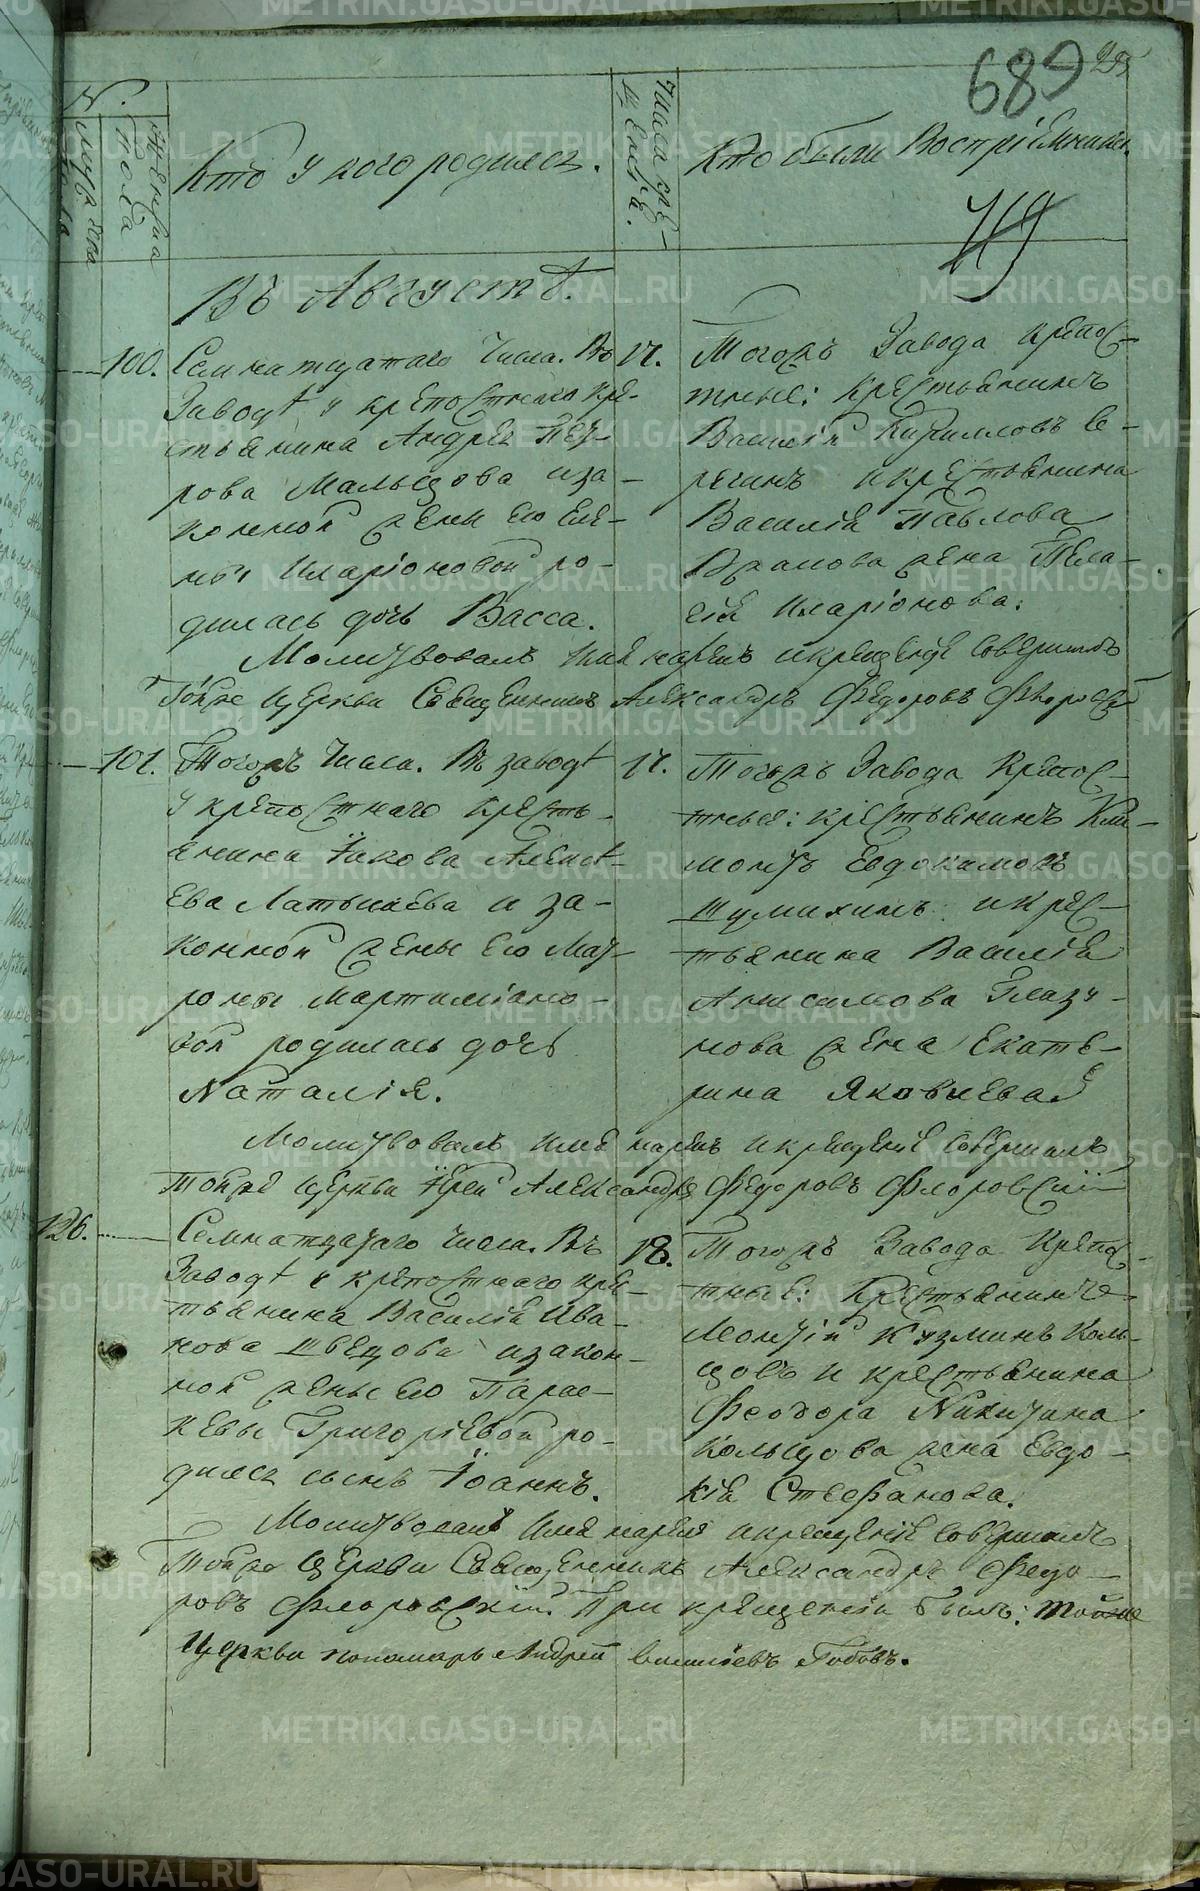 689
N.
Мужеска
пола
Женска
Кто у кого родился.
Числа кре-
щенія.
Кто были Воспріемники.
Въ Августѣ.
100. Семнатцатаго Числа. Во
Заводѣ у крепостнаго кре-
стьянина Андрея Пет-
рова Мальцова и за-
конной жены его Еле-
ны Иларіоновой ро-
дилась дочь Васса.
17. Тогожъ Завода крепос-
тные: крестьянинъ
Василій Кирилловъ
и крестьянина
Василія Павлова
жена Пела-
гія Иларіонова.
Молитвовалъ имя нарекъ и крещеніе совершилъ
тойже церкви Священникъ Александръ Федоровъ Флоровскій
101. Тогожъ Числа. Въ заводѣ
у крепостнаго кресть-
янина Іакова Алексѣ-
ева Латышева и за-
конной жены его Мат-
роны Мартиміано-
вой родилась дочь
Наталія.
17. Тогожъ Завода Крепос-
тные: крестьянинъ Кли-
монтъ Евдокимовъ
Шумихинъ и крес-
тьянина Василія
Анисимова Глазу-
нова жена Екате-
рина Яковлева
Молитвовалъ имя нарекъ и крещеніе совершилъ
тойже церкви Іерей Александръ Федоровъ Флоровскій
126. Семнатцатаго Числа. Въ
Заводѣ у крепостнаго крес-
тьянина Василія Ива-
нова Швецова и закон-
ной жены его Парас-
кевы Григоріевой ро-
дился сынъ Іоаннъ.
18. Тогожъ Завода Крепос-
тные: Крестьянинъ
Леонтій Кузминъ Коль-
цовъ и крестьянина
Феодора Никитина
Кольцова жена Евдо-
кія Стефанова.
Молитвовалъ имя нарекъ и крещеніе совершилъ
тойже Церкви Священникъ Александръ Федо-
ровъ Флоровскій. При крещеніи былъ: тойже
Церкви пономарь Андрей Василіевъ
METRIKI.GASO-URAL.RU